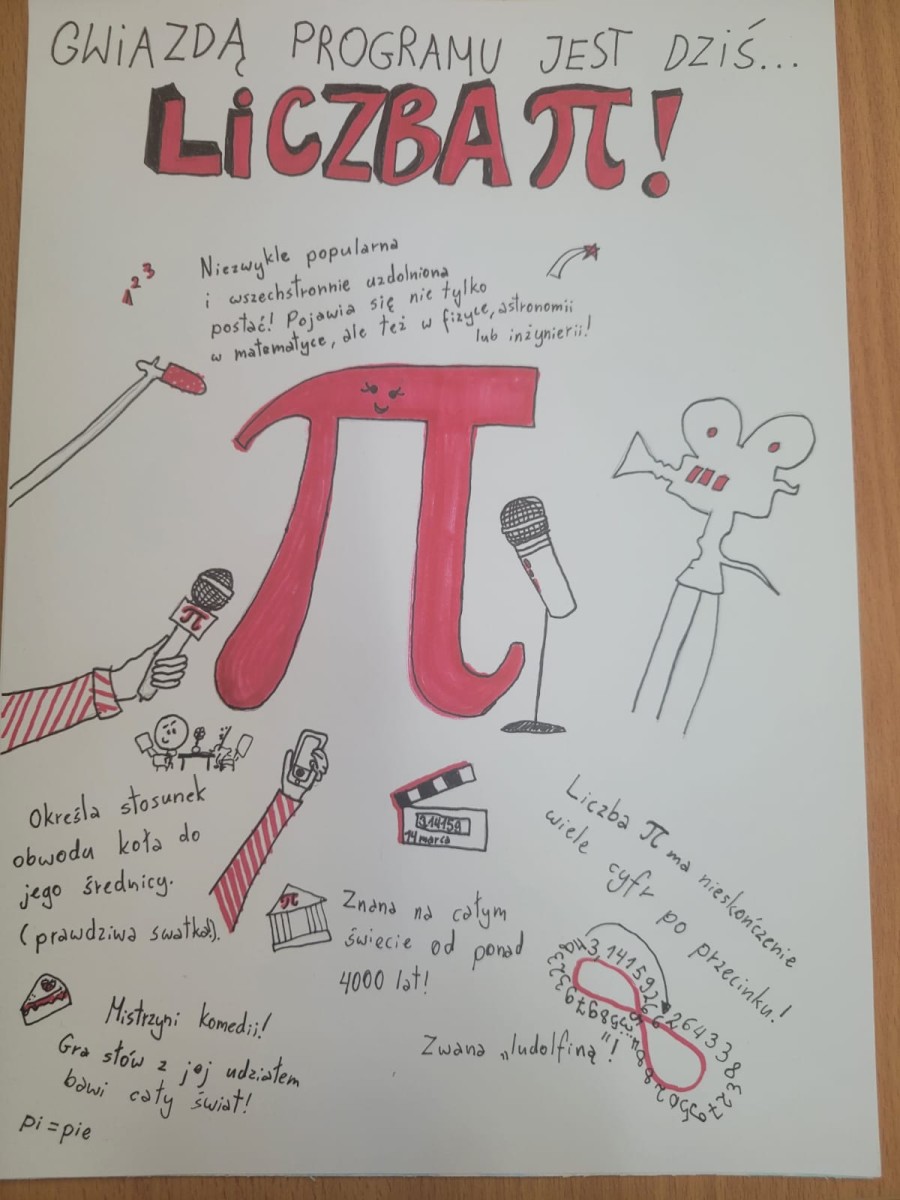 GWiAZDĄ PROGRAMU JEST DZiŚ...
LiCZBA π!
1 2 3
Niezwykle popularna
i wszechstronnie uzdolniona
postać! Pojawia się nie tylko
w matematyce, ale też w fizyce, astronomii
lub inżynierii!
π
π
Określa stosunek
obwodu koła do
jego średnicy.
(prawdziwa swatka!).
3,14159
14 marca
π
Znana na całym
świecie od ponad
4000 lat!
Liczba π ma nieskończenie
wiele cyfr po przecinku!
Mistrzyni komedii!
Gra słów z jej udziałem
bawi cały świat!
pi = pie
Zwana „ludolfiną"!
3,1415926